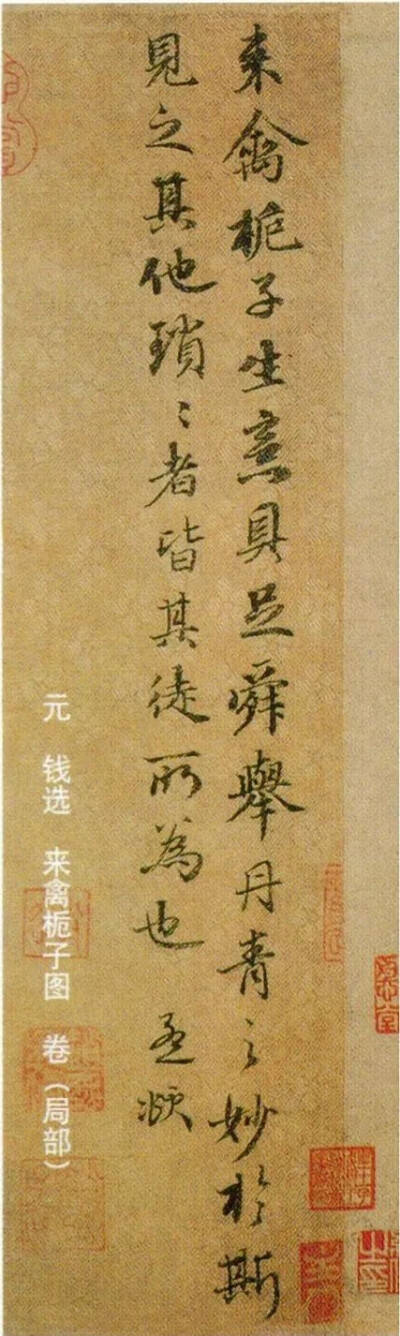 来禽梔子生意具足舜舉丹青之妙於斯
見之其他瑣〻者皆其徒所為也　孟頫
元　钱选　来禽栀子图　卷（局部）